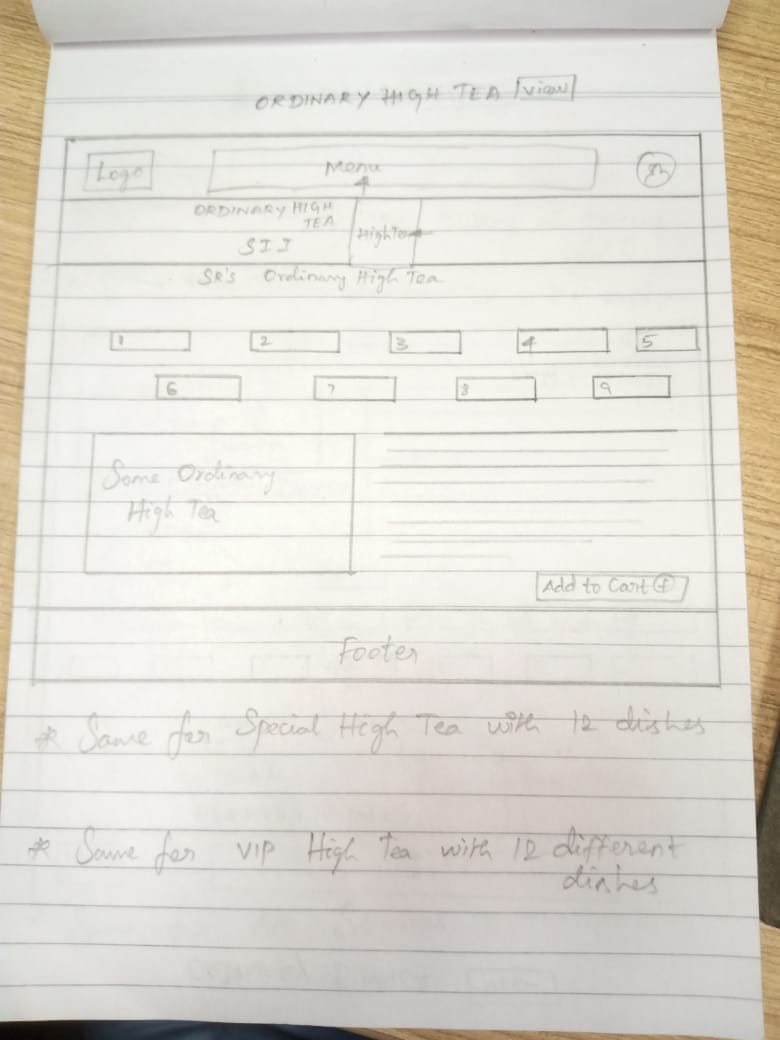 ORDINARY HIGH TEA View
Logo
Menu
ORDINARY HIGH
TEA
High Tea
SR's Ordinary High Tea
1 2 3 4 5
6 7 8 9
Some Ordinary
High Tea
Add to Cart +
Footer
* Same for Special High Tea with 12 dishes
* Same for VIP High Tea with 12 different
dishes